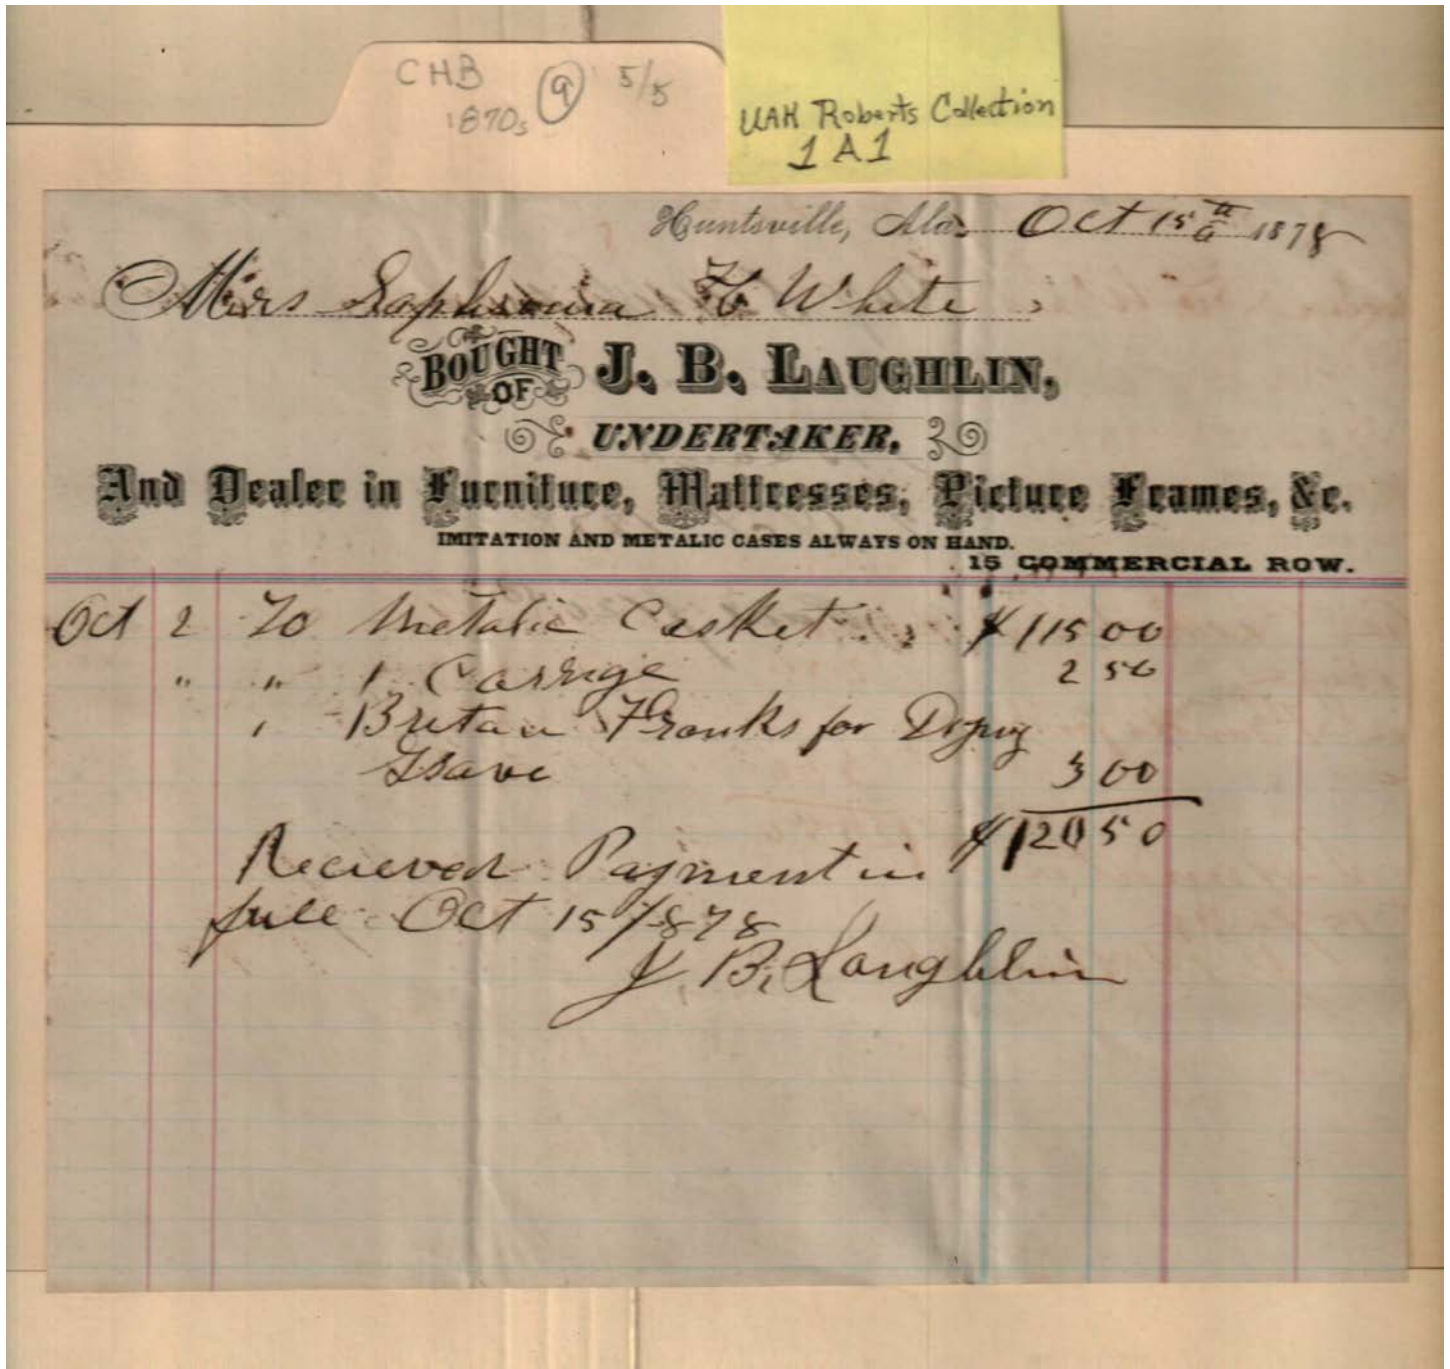 CHB 9 5/5
1870s
UAH Roberts Collection
1A1
Huntsville, Ala. Oct 15th 1878
Mrs Sophronia H White
BOUGHT OF J. B. LAUGHLIN,
UNDERTAKER,
And Dealer in Furniture, Mattresses, Picture Frames, &c.
IMITATION AND METALIC CASES ALWAYS ON HAND.
15 COMMERCIAL ROW.
Oct 2 To Metalic Casket $115 00
" " 1 Carrige 2 50
" Franks for
Grave 3 00
$120 50
Recieved Payment in
full Oct 15 1878
J. B. Laughlin